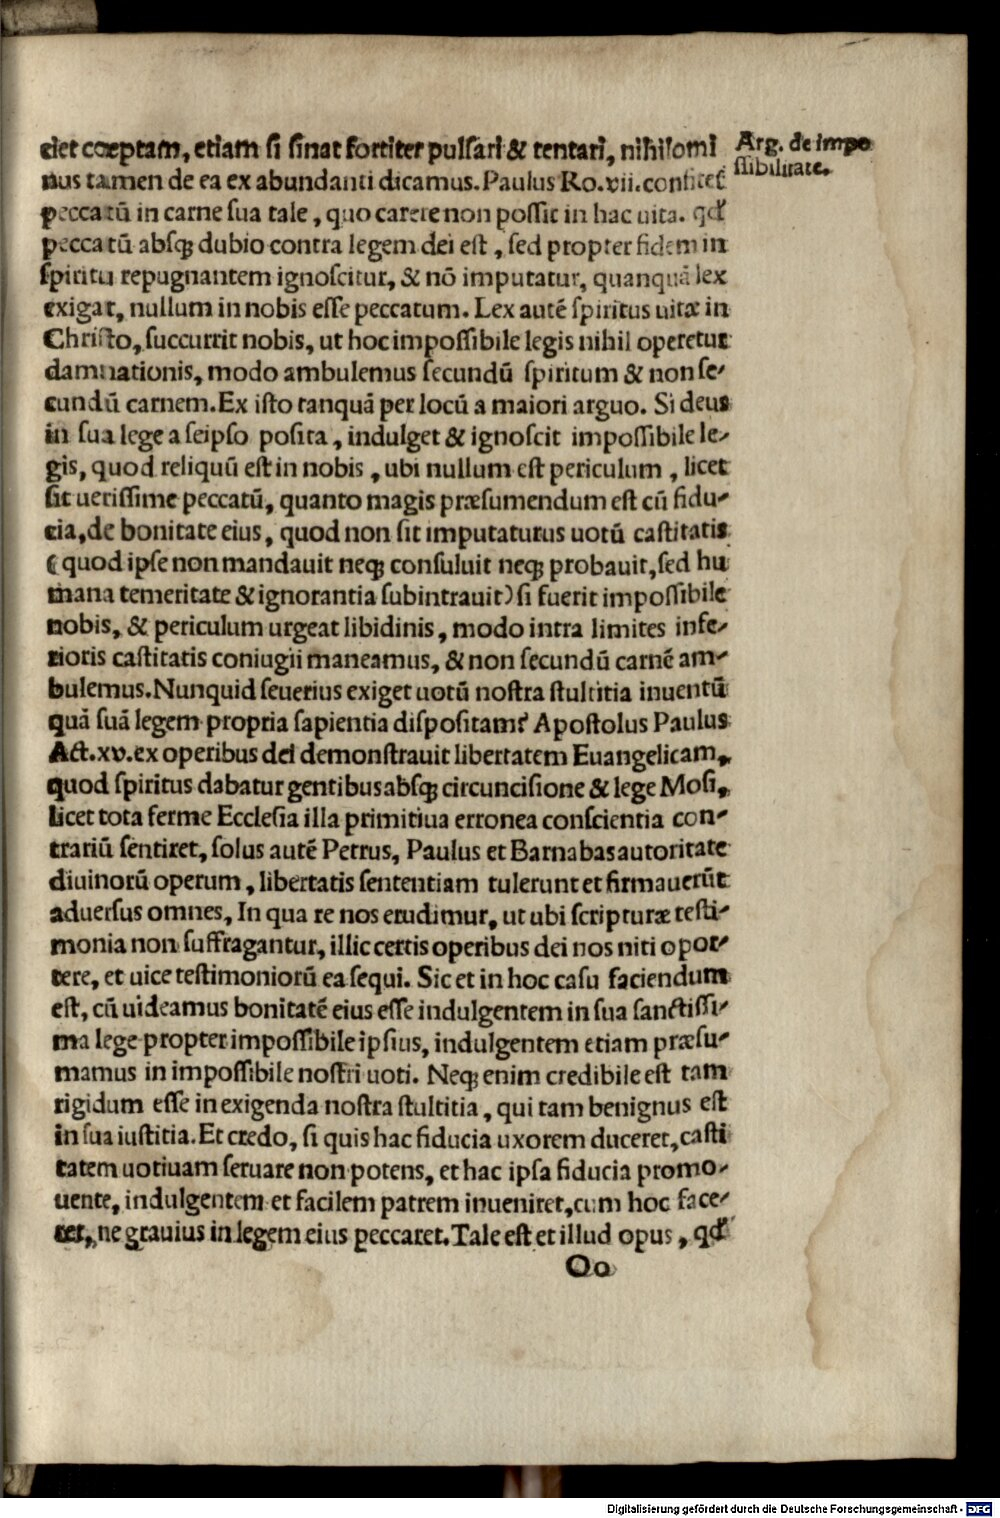 det cœptam, etiam si sinat fortiter pulsari & tentari, nihilomi
nus tamen de ea ex abundanti dicamus. Paulus Ro. vii. confitet᷑
peccatū in carne sua tale, quo carere non possit in hac uita. qđ
peccatū absq; dubio contra legem dei est, sed propter fidem in
spiritu repugnantem ignoscitur, & nō imputatur, quanquā lex
exigat, nullum in nobis esse peccatum. Lex autē spiritus uitæ in
Christo, succurrit nobis, ut hoc impossibile legis nihil operetur
damnationis, modo ambulemus secundū spiritum & non se-
cundū carnem. Ex isto tanquā per locū a maiori arguo. Si deus
in sua lege a seipso posita, indulget & ignoscit impossibile le-
gis, quod reliquū est in nobis, ubi nullum est periculum, licet
sit uerissime peccatū, quanto magis præsumendum est cū fidu-
cia, de bonitate eius, quod non sit imputaturus uotū castitatis
(quod ipse non mandauit neq; consuluit neq; probauit, sed hu
mana temeritate & ignorantia subintrauit) si fuerit impossibile
nobis, & periculum urgeat libidinis, modo intra limites infe-
rioris castitatis coniugii maneamus, & non secundū carnē am-
bulemus. Nunquid seuerius exiget uotū nostra stultitia inuentū
quā suā legem propria sapientia dispositam? Apostolus Paulus
Act. xv. ex operibus dei demonstrauit libertatem Euangelicam,
quod spiritus dabatur gentibus absq; circuncisione & lege Mosi,
licet tota ferme Ecclesia illa primitiua erronea conscientia con-
trariū sentiret, solus autē Petrus, Paulus et Barnabas autoritate
diuinorū operum, libertatis sententiam tulerunt et firmauerūt
aduersus omnes, In qua re nos erudimur, ut ubi scripturæ testi-
monia non suffragantur, illic certis operibus dei nos niti opor-
tere, et uice testimoniorū ea sequi. Sic et in hoc casu faciendum
est, cū uideamus bonitatē eius esse indulgentem in sua sanctissi-
ma lege propter impossibile ipsius, indulgentem etiam præsu-
mamus in impossibile nostri uoti. Neq; enim credibile est tam
rigidum esse in exigenda nostra stultitia, qui tam benignus est
in sua iustitia. Et credo, si quis hac fiducia uxorem duceret, casti
tatem uotiuam seruare non potens, et hac ipsa fiducia promo-
uente, indulgentem et facilem patrem inueniret, cum hoc face-
ret, ne grauius in legem eius peccaret. Tale est et illud opus, qđ
Oo
Arg. de impo
ssibilitate.
Digitalisierung gefördert durch die Deutsche Forschungsgemeinschaft - DFG